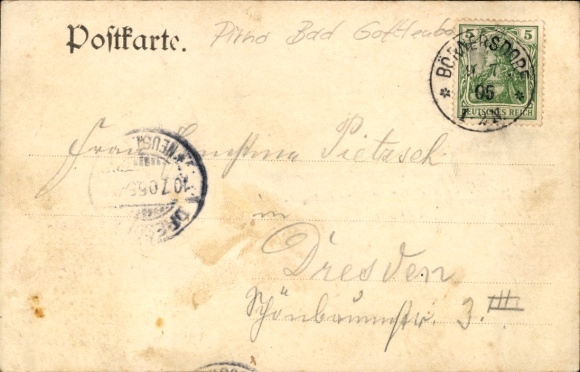 Postkarte.
Pirna Bad Gottleuba
5
DEUTSCHES REICH
BÖRNERSDORF
05
Frau Pietzsch
10.7.05
DRE
in
Dresden
Schönbrunnstr. 3. III